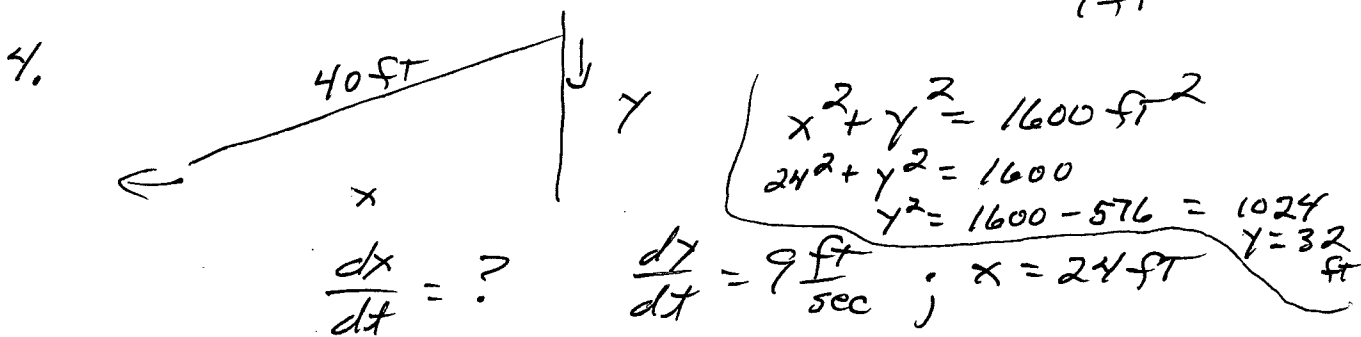 4.
40 ft
y
x
x² + y² = 1600 ft²
24² + y² = 1600
y² = 1600 - 576 = 1024
y = 32 ft
dx/dt = ? dy/dt = 9 ft/sec ; x = 24 ft